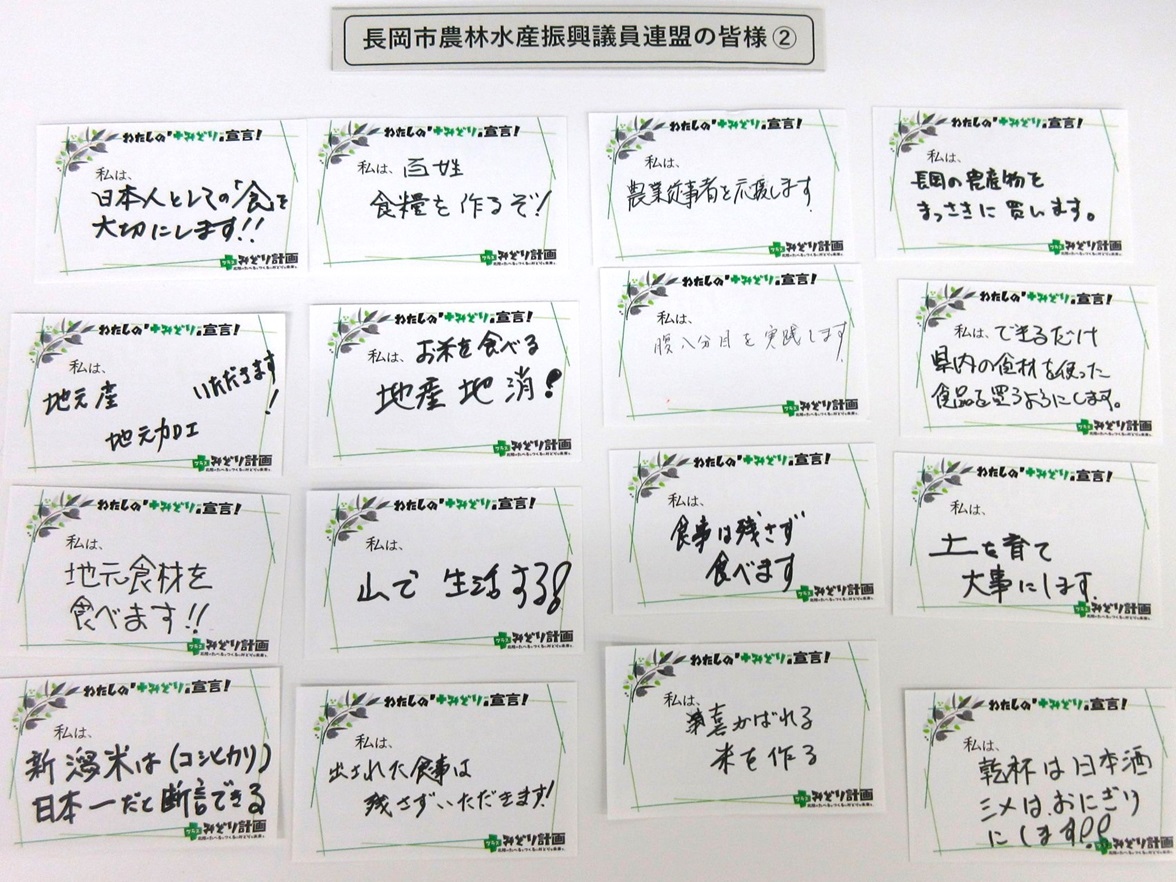 長岡市農林水産振興議員連盟の皆様②
わたしの"+みどり"な宣言!
私は、
日本人としての「食」を
大切にします!!
プラスみどり計画
わたしの"+みどり"な宣言!
私は、百姓
食糧を作るぞ!
プラスみどり計画
わたしの"+みどり"な宣言!
私は、
農業従事者を応援します
プラスみどり計画
わたしの"+みどり"な宣言!
私は、
長岡の農産物を
まっさきに買います。
プラスみどり計画
わたしの"+みどり"な宣言!
私は、
地元産
地元加工
いただきます!
プラスみどり計画
わたしの"+みどり"な宣言!
私は、お米を食べる
地産地消!
プラスみどり計画
わたしの"+みどり"な宣言!
私は、
腹八分目を実践します
プラスみどり計画
わたしの"+みどり"な宣言!
私は、できるだけ
県内の食材を使った
食品を買うようにします。
プラスみどり計画
わたしの"+みどり"な宣言!
私は、
地元食材を
食べます!!
プラスみどり計画
わたしの"+みどり"な宣言!
私は、
山で生活する!
プラスみどり計画
わたしの"+みどり"な宣言!
私は、
食事は残さず
食べます
プラスみどり計画
わたしの"+みどり"な宣言!
私は、
土を育て
大事にします.
プラスみどり計画
わたしの"+みどり"な宣言!
私は、
新潟米は(コシヒカリ)
日本一だと断言できる
プラスみどり計画
わたしの"+みどり"な宣言!
私は、
出された食事は
残さずいただきます!
プラスみどり計画
わたしの"+みどり"な宣言!
私は、
喜かばれる
米を作る
プラスみどり計画
わたしの"+みどり"な宣言!
私は、
乾杯は日本酒
シメは、おにぎり
にします!!
プラスみどり計画